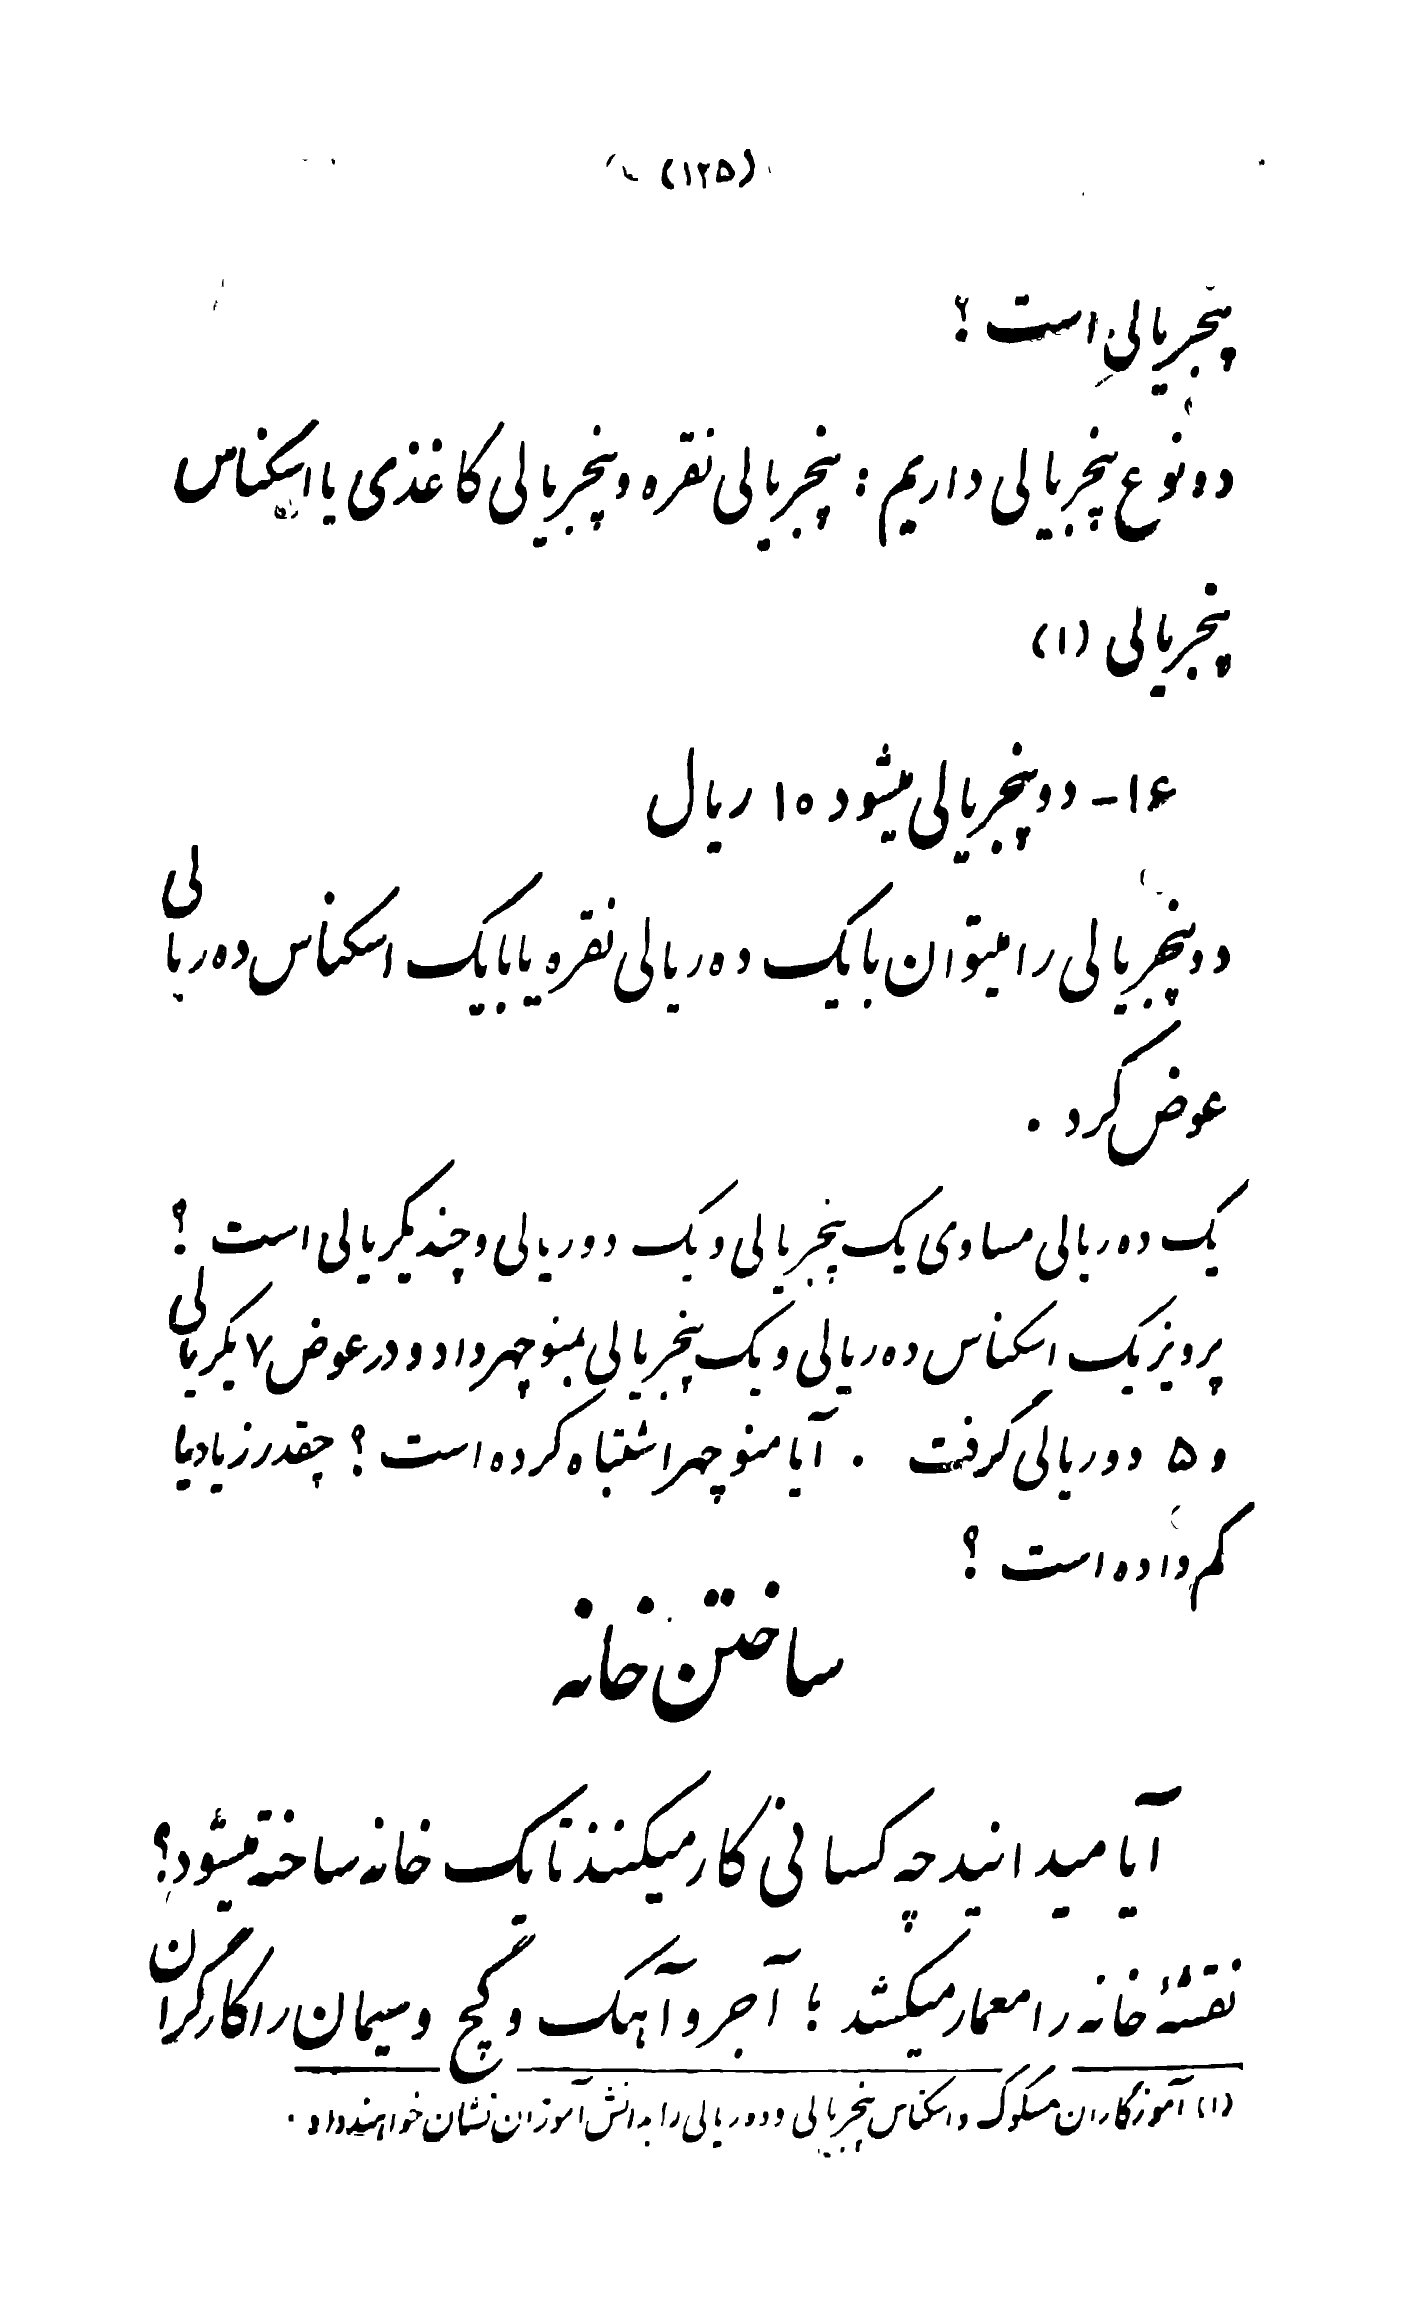 (۱۲۵)
پنجریالی است ؟
دو نوع پنجریالی داریم : پنجریالی نقره و پنجریالی کاغذی یا اسکناس
پنجریالی (۱)
۱۶- دو پنجریالی میشود ۱۰ ریال
دو پنجریالی را میتوان با یک ده ریالی نقره یا با یک اسکناس ده ریالی
عوض کرد .
یک ده ریالی مساوی یک پنجریالی و یک دو ریالی و چند یکریالی است ؟
پرویز یک اسکناس ده ریالی و یک پنجریالی بمنوچهر داد و در عوض ۷ یکریالی
و ۵ دو ریالی گرفت . آیا منوچهر اشتباه کرده است ؟ چقدر زیاد یا
کم داده است ؟
ساختن خانه
آیا میدانید چه کسانی کار میکنند تا یک خانه ساخته میشود؟
نقشهٔ خانه را معمار میکشد ؛ آجر و آهک و گچ و سیمان را کارگران
(۱) آموزگاران مسکوک و اسکناس پنجریالی و ده ریالی را به دانش آموزان نشان خواهند داد .